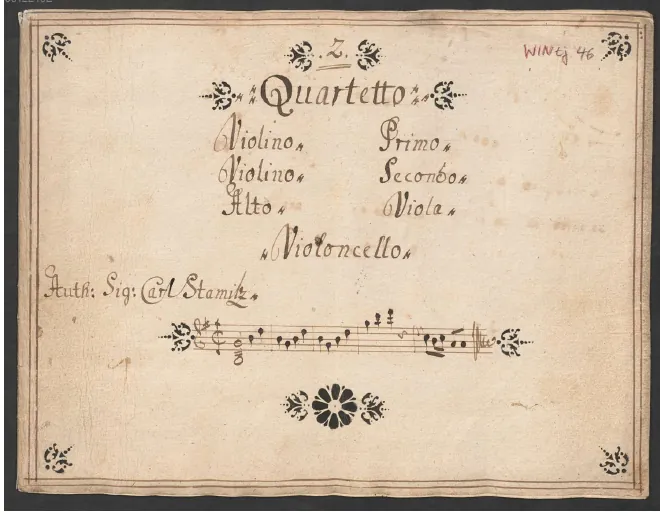 .2.
WINtj 46
Quartetto
Violino Primo
Violino Secondo
Alto Viola
Violoncello
Auth: Sig: Carl Stamitz